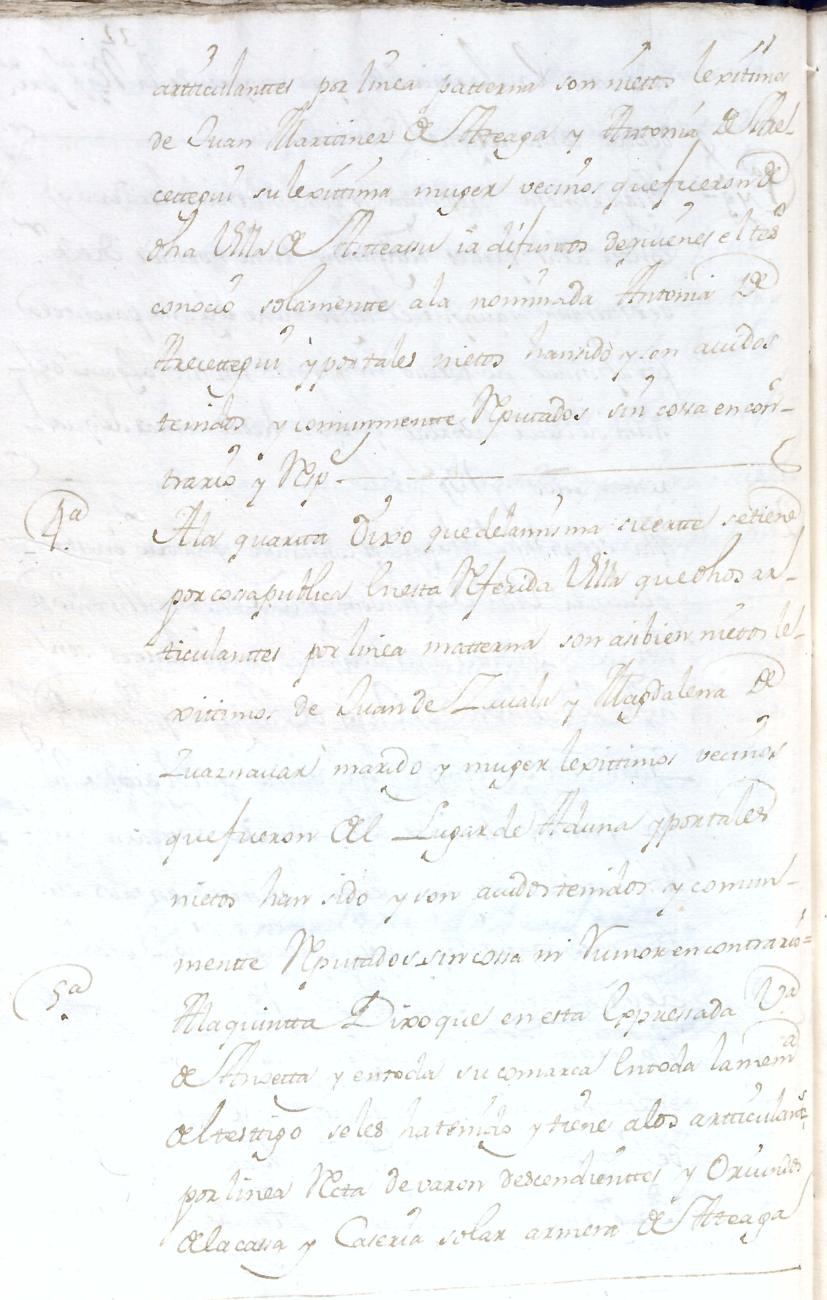 artticulanttes por linea patterna son niettos lexitimos
de Juan Marttinez de Atteaga y Antonia de Arre-
cettegui su lexittima muger vecinos que fueron de
dha Villa de Atteassu ia difuntos de quienes el tesº
conoció solamentte a la nominada Antonia de
Arecettegui y por tales niettos han sido y son auidos
tenidos y comunmentte Reputados sin cossa en con-
trario y Resp.
4ª A la quartta Dixo que de la misma suertte se tiene
por cosa publica En esta Referida Villa que dhos ar-
ticulanttes por linea matterna son asi bien niettos le-
xittimos de Juan de Zuualu y Magdalena de
Zuaznauar marido y muger lexittimos vecinos
que fueron del Lugar de Aduna y por tales
niettos han sido y son auidos tenidos y comun-
mentte Reputados sin cossa ni Rumor en contrario=
5ª A la quintta Dixo que en esta Expressada Vª
de Anoetta y en toda su comarca En toda la memª
del testtigo se les ha tenido y tiene a los artticulants
por linea Recta de varon descendienttes y Oriundos
de la cassa y Caseria solar armera de Atteaga